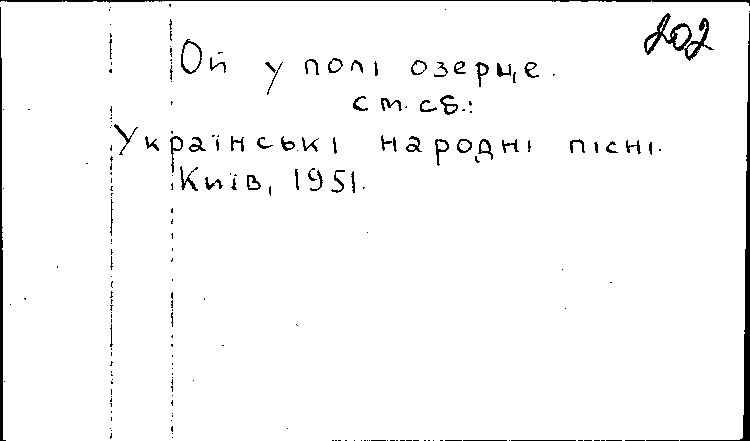 202
Ой у полі озерце.
ст. сб.:
Українські народні пісні.
Київ, 1951.